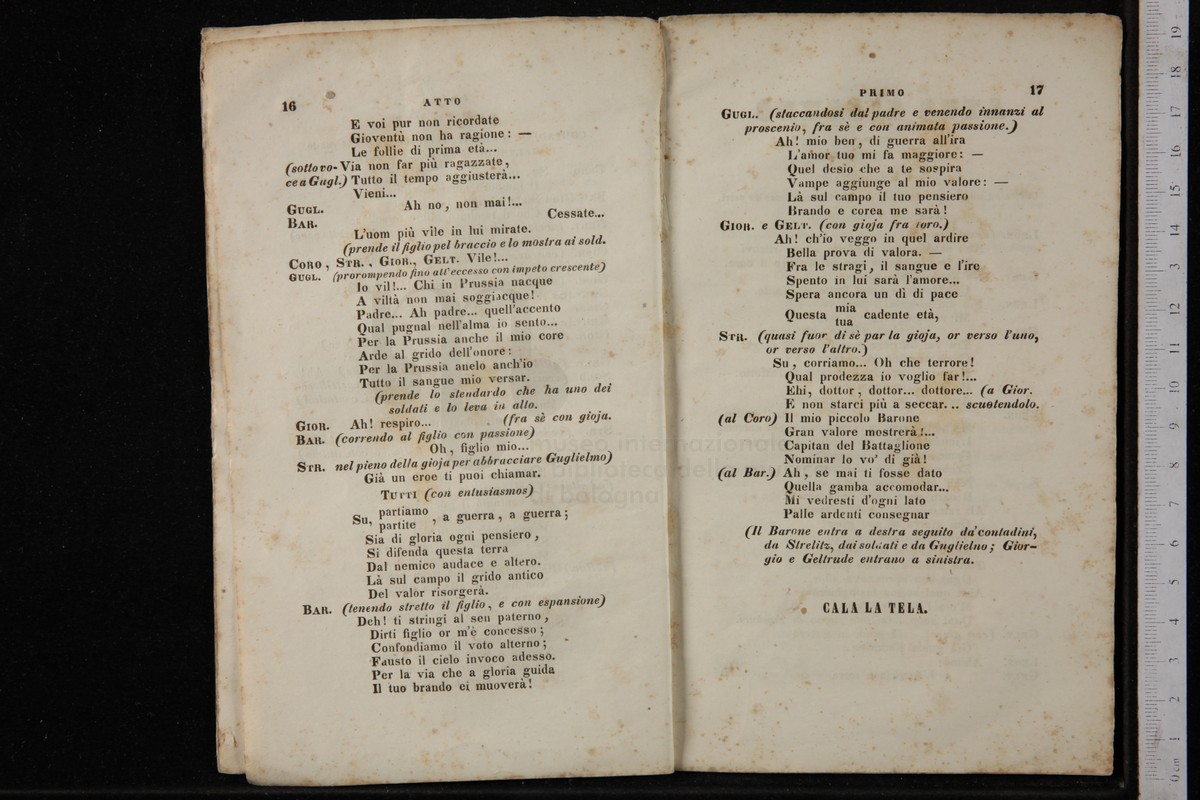 16 ATTO
E voi pur non ricordate
Gioventù non ha ragione: —
Le follie di prima età...
(sotto vo- Via non far più ragazzate,
ce a Gugl.) Tutto il tempo aggiusterà...
Vieni...
GUGL. Ah no, non mai!...
BAR. Cessate...
L'uom più vile in lui mirate.
(prende il figlio pel braccio e lo mostra ai sold.
CORO, STR., GIOR., GELT. Vile!...
GUGL. (prorompendo fino all'eccesso con impeto crescente)
Io vil!... Chi in Prussia nacque
A viltà non mai soggiacque!
Padre... Ah padre... quell'accento
Qual pugnal nell'alma io sento...
Per la Prussia anche il mio core
Arde al grido dell'onore:
Per la Prussia anelo anch'io
Tutto il sangue mio versar.
(prende lo stendardo che ha uno dei
soldati e lo leva in alto.
GIOR. Ah! respiro... (fra sè con gioja.
BAR. (correndo al figlio con passione)
Oh, figlio mio...
STR. nel pieno della gioja per abbracciare Guglielmo)
Già un eroe ti puoi chiamar.
TUTTI (con entusiasmos)
Su, partiamo
partite , a guerra, a guerra;
Sia di gloria ogni pensiero,
Si difenda questa terra
Dal nemico audace e altero.
Là sul campo il grido antico
Del valor risorgerà.
BAR. (tenendo stretto il figlio, e con espansione)
Deh! ti stringi al sen paterno,
Dirti figlio or m'è concesso;
Confondiamo il voto alterno;
Fausto il cielo invoco adesso.
Per la via che a gloria guida
Il tuo brando ei muoverà!
PRIMO 17
GUGL. (staccandosi dal padre e venendo innanzi al
proscenio, fra sè e con animata passione.)
Ah! mio ben, di guerra all'ira
L'amor tuo mi fa maggiore: —
Quel desio che a te sospira
Vampe aggiunge al mio valore: —
Là sul campo il tuo pensiero
Brando e corea me sarà!
GIOR. e GELT. (con gioja fra loro.)
Ah! ch'io veggo in quel ardire
Bella prova di valora. —
Fra le stragi, il sangue e l'ire
Spento in lui sarà l'amore...
Spera ancora un dì di pace
Questa mia
tua cadente età,
STR. (quasi fuor di sè par la gioja, or verso l'uno,
or verso l'altro.)
Su, corriamo... Oh che terrore!
Qual prodezza io voglio far!...
Ehi, dottor, dottor... dottore... (a Gior.
E non starci più a seccar... scuotendolo.
(al Coro) Il mio piccolo Barone
Gran valore mostrerà!...
Capitan del Battaglione
Nominar lo vo' di già!
(al Bar.) Ah, se mai ti fosse dato
Quella gamba accomodar...
Mi vedresti d'ogni lato
Palle ardenti consegnar
(Il Barone entra a destra seguito da'contadini,
da Strelitz, dai soldati e da Guglielno; Gior-
gio e Geltrude entrano a sinistra.
CALA LA TELA.
museo internazionale
biblioteca della
di bologna